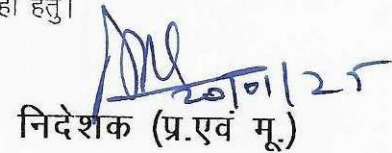 हेतु।
20/01/25
निदेशक (प्र.एवं मू.)